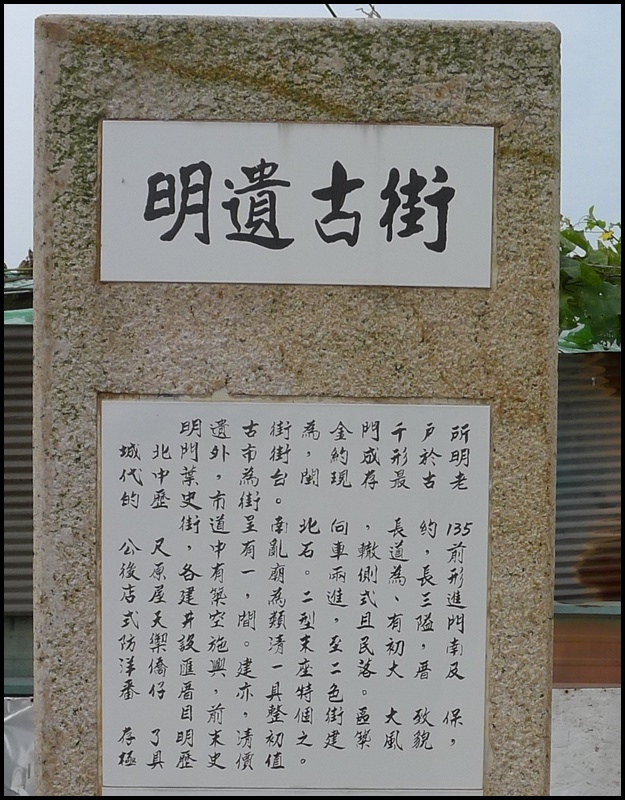 明遺古街
明遺古街為金門千戶所
城北門外市街，約成形於明
代中葉，為台閩現存最古老
的歷史市街。
街道呈南北向，長約135
公尺，中有亂石車轍道，前
後原各有一廟。兩側為長形
店屋建築，為二進式、三進
式天井空間類型，且有隘門
防禦設施。清末至民初，南
洋僑匯興建一座二落大厝及
番仔厝，亦具特色。
目前，整個街區大致保
存了明末清初之建築風貌，
極具歷史價值。